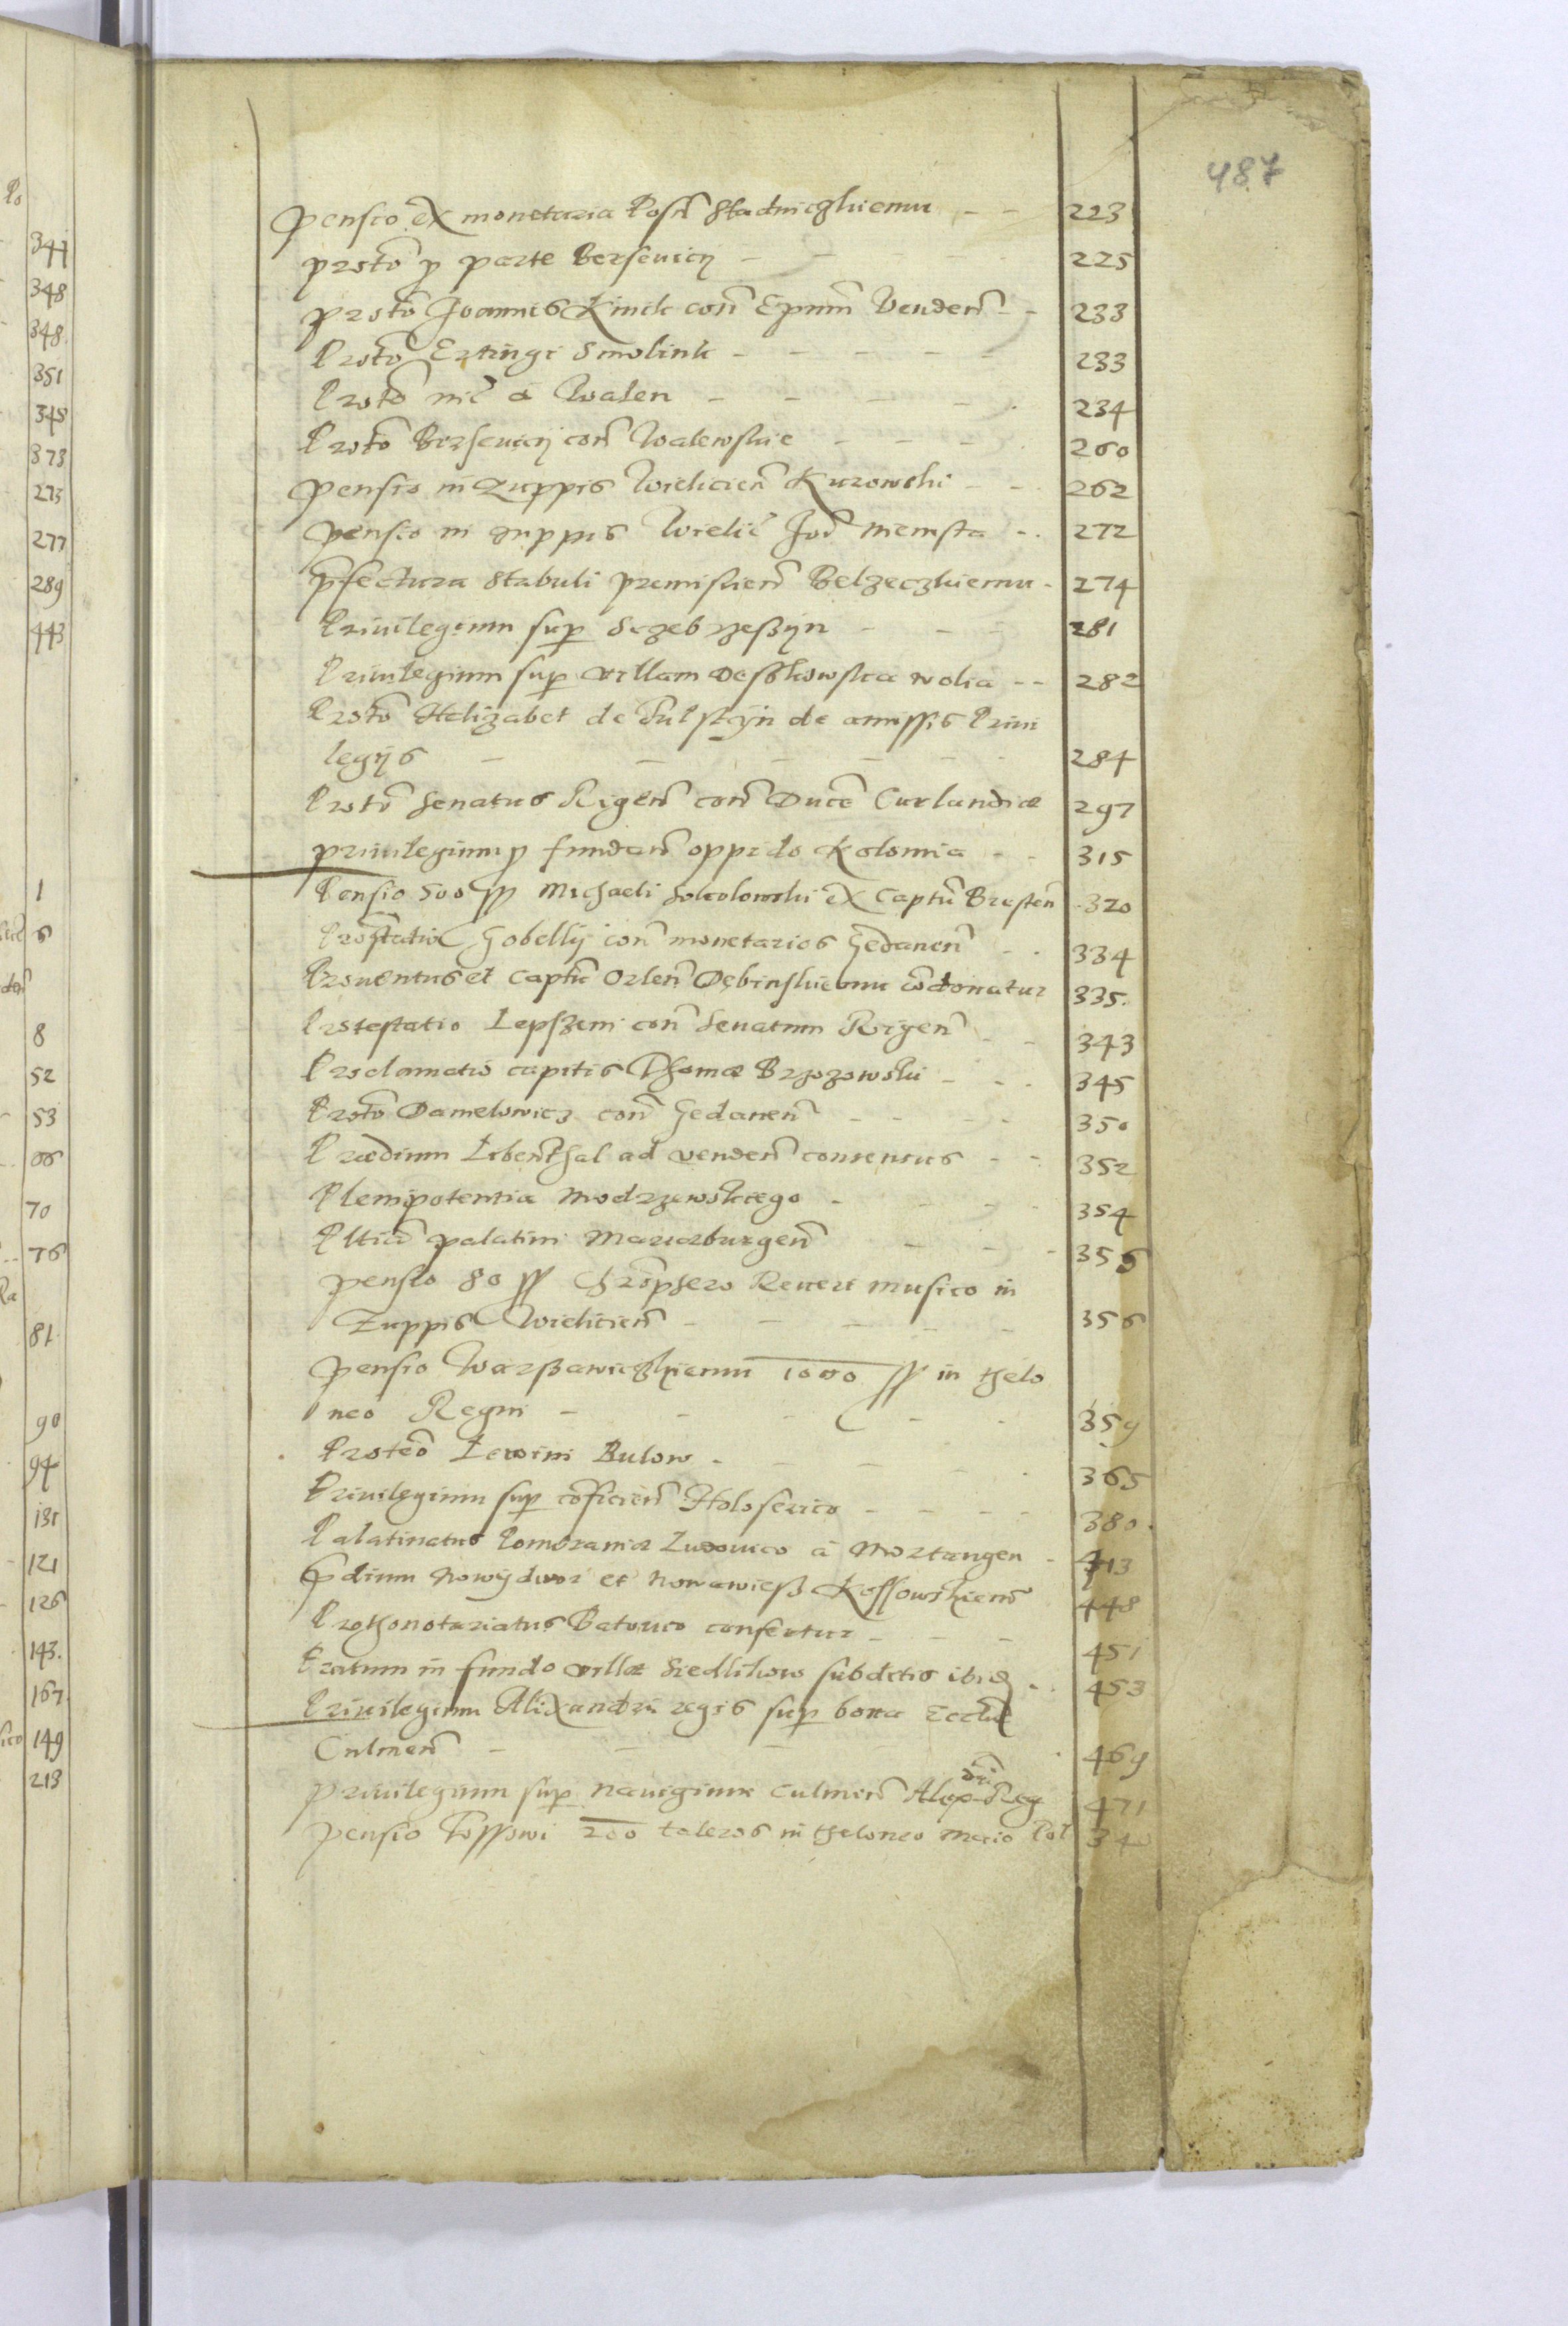 487
Pensio ex monetaria Posn Stadniczkiemu - - 223
proto p parte Bersevicij - 225
proto Joannis Kinck con Epum Venden - - 233
Proto Ertingi Smolink - - - - - 233
Proto nic a Walen - - - - 234
Proto Bersevicij con Walewskie - - - 260
Pensio in Zuppis Wielicien Kurowski - - 262
pensio in zuppis Wielic Jod Memsta - . 272
pfectura stabuli premislien Belzeczkiemu - 274
Privilegium sup Sczebrzessyn - - - 281
Privilegium sup villam Desskowska wolia - - 282
Proto Halizabet de Fulstyn de amissis Privi
legijs - - - - - 284
Proto Senatus Rigen con Duce Curlandiæ 297
privilegium p fundan oppido Kolomia - - 315
Pensio 500 Michaeli Sokolowski ex Captu Bresten 320
Protestatio Gobellij con monetarios Gedanen - - 334
Proventus et Captu Orlen Dębinskiemu condonatur 335.
Protestatio Lepszeni con Senatum Rigen - - 343
Proclamatio capitis Thomæ Brzozowski - - - 345
Proto Danielowicz con Gedanen - - - - 350
Prædium Libenthal ad venden consensus - - 352
Plenipotentia Modrzewskiego - - - - 354
Pltia palatini Mariæburgen - - - 356
pensio 80 Chrophero Revert musico in
Zuppis Wielicien - - - - - 356
pensio Warssawiczkiemu 1000 in thelo
neo Regni - - - - - 359
Proteo Lewini Bulow - - - - 365
Privilegium sup conficien Holoserico - - - - 380.
Palatinatus Pomoraniæ Ludovico a Mortangen - 413
pdium Nowydwor et Nowawiess Kossowskiem 448
Prothonotariatus Batorico confertur - - - 451
Pratum in fundo villæ Siedlikow subditis ibid - . 453
Privilegium Alixandri regis sup bona Ecclæ
Culmen - - - - 469
privilegium sup navigium Culmen Alexdri Reg 471
pensio Fossowi 200 taleros in theloneo Maio Pol 340
Po
344
348
348.
351
348
373
273
277
289
443
1
6
8
52
53
66
70
76
81.
90
94
131
121
126
143.
167.
149
213